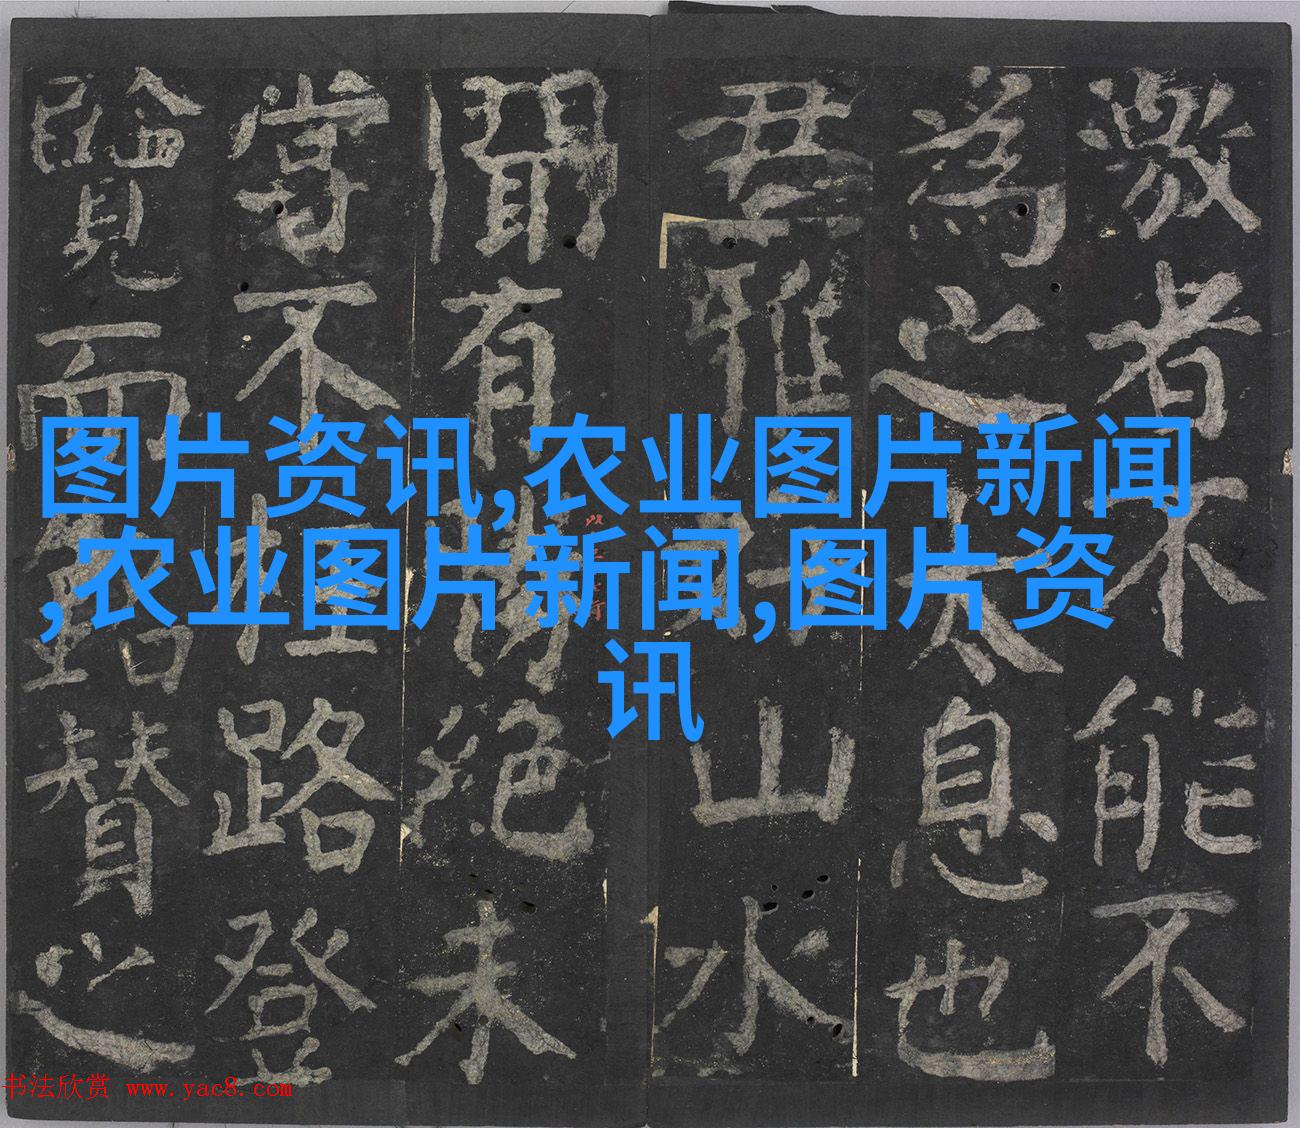 激者不能不
為之太息也
君雅好山水
聞有勝絕未
嘗不枉路登
覽而贊之
图片资讯,农业图片新闻
,农业图片新闻,图片资
讯
书法欣赏 www.yac8.com